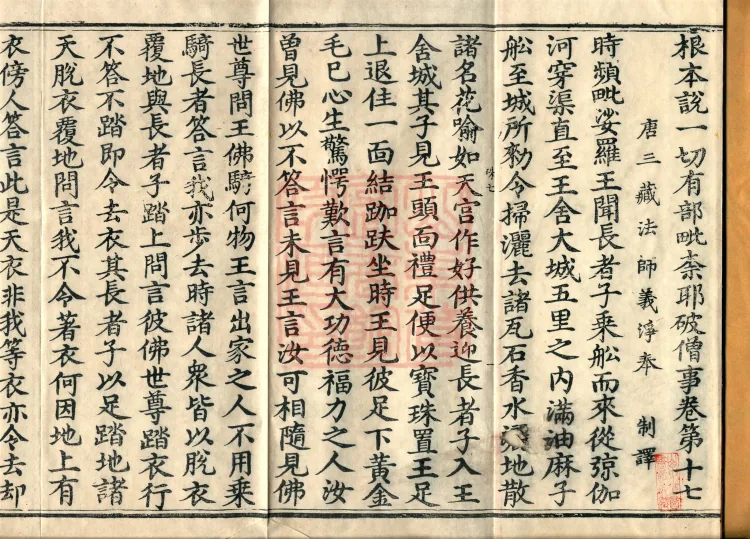 根本說一切有部毗柰耶破僧事卷第十七
唐三藏法師義淨奉 制譯
時頻毗娑羅王聞長者子乘舩而來從弶伽
河穿渠直至王舍大城五里之內滿油麻子
舩至城所勑令掃灑去諸瓦石香水灑地散
諸名花喻如天宮作好供養迎長者子入王
舍城其子見王頭面禮足便以寶珠置王足
上退住一面結跏趺坐時王見彼足下黃金
毛巳心生驚愕歎言有大功德福力之人汝
曾見佛以不答言未見王言汝可相隨見佛
世尊問王佛騎何物王言出家之人不用乘
騎長者答言我亦步去時諸人衆皆以脫衣
覆地與長者子踏上問言彼佛世尊踏衣行
不答不踏即令去衣其長者子以足踏地諸
天脫衣覆地問言我不令著衣何因地上有
衣傍人答言此是天衣非我等衣亦令去却